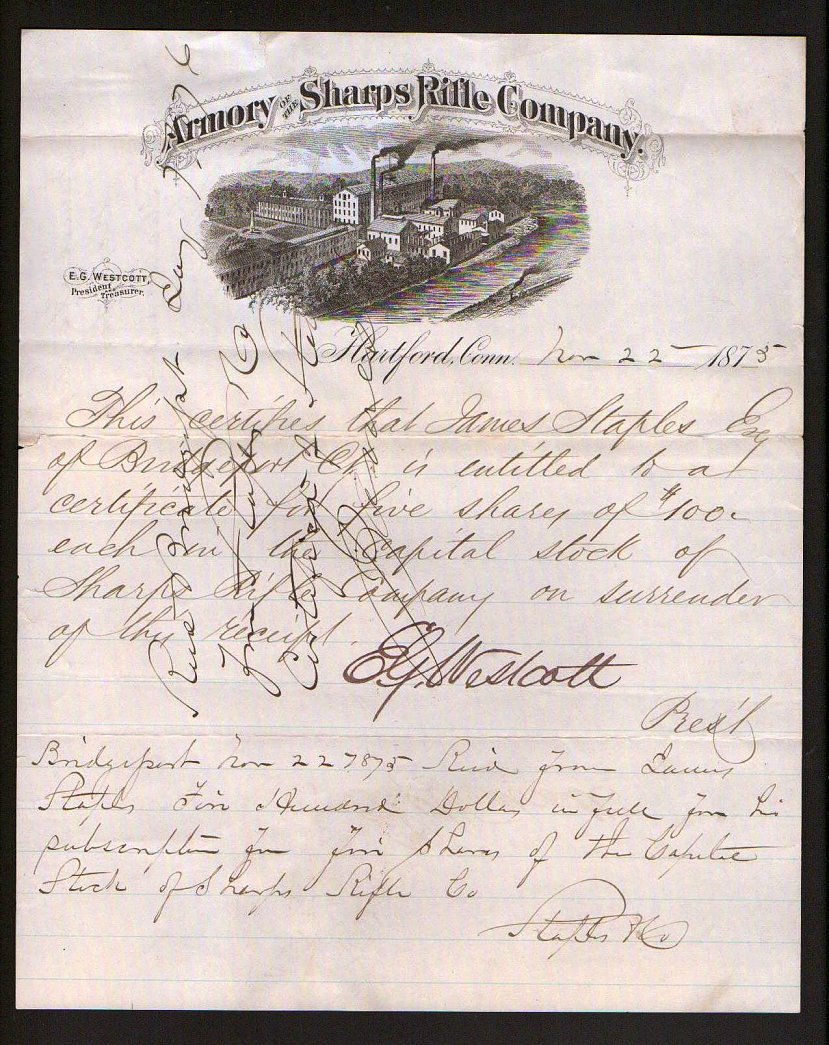 Armory OF THE Sharps Rifle Company.
E.G. WESTCOTT,
President
Treasurer.
Hartford, Conn. Nov 22 1875
This certifies that James Staples Esq
of Bridgeport Ct. is entitled to a
certificate for five shares of $100.
each in the Capital stock of
Sharps Rifle Company on surrender
of this receipt.
E.G. Westcott
Pres't
Bridgeport Nov 22 1875 Recd from James
Staples Five Hundred Dollars in full for his
subscription for five Shares of the Capital
Stock of Sharps Rifle Co
Staples & Co
Recd Bridgeport